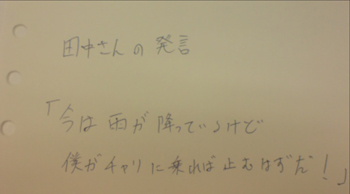 田中さんの発言
「今は雨が降っているけど
僕がチャリに乗れば止むはずだ!」